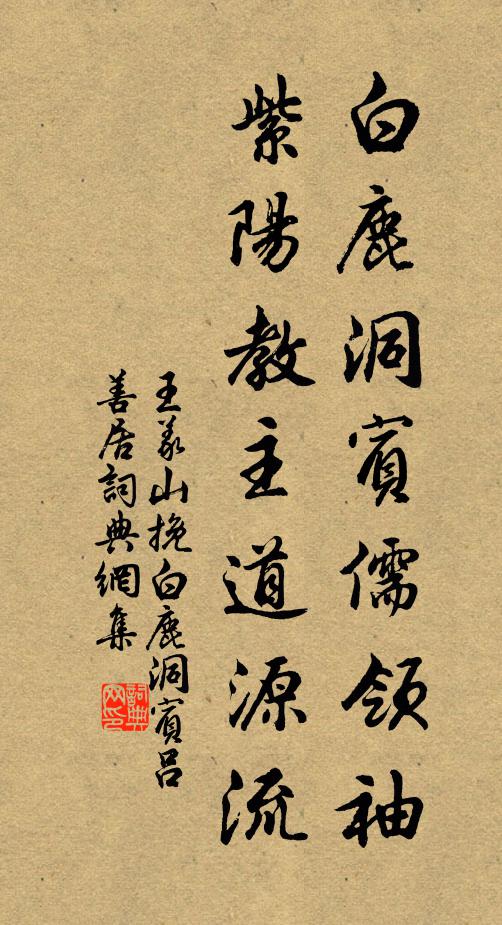 白鹿洞賓儒領袖
紫陽教主道源流
王義山挽白鹿洞賓呂
善居詞典網集
詞典网印